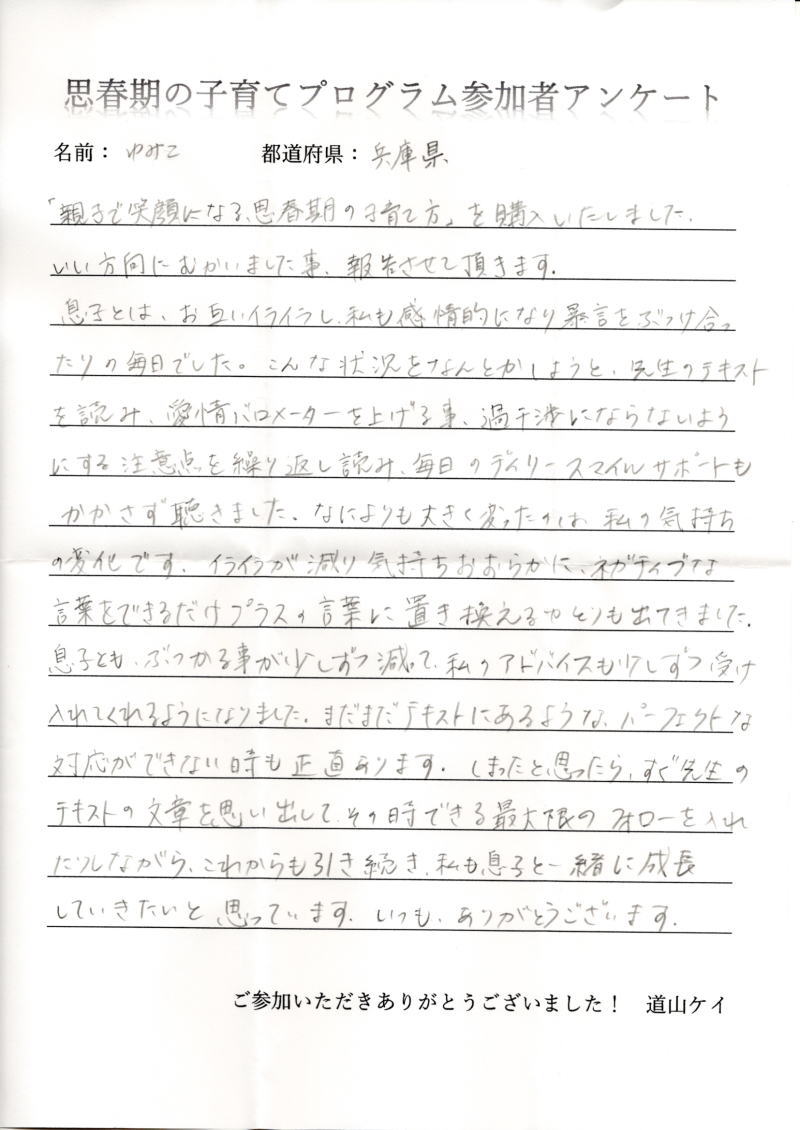 思春期の子育てプログラム参加者アンケート
名前： ゆみこ 都道府県： 兵庫県
「親子で笑顔になる、思春期の子育て方」を購入いたしました。
いい方向にむかいました事、報告させて頂きます。
息子とは、お互いイライラし、私も感情的になり暴言をぶつけ合っ
たりの毎日でした。こんな状況をなんとかしようと、先生のテキスト
を読み、愛情バロメーターを上げる事、過干渉にならないよう
にする注意点を繰り返し読み、毎日のデイリースマイルサポートも
かかさず聴きました。なによりも大きく変ったのは、私の気持ち
の変化です。イライラが減り気持ちおおらかに、ネガティブな
言葉をできるだけプラスの言葉に置き換えるゆとりも出てきました。
息子とも、ぶつかる事が少しずつ減って、私のアドバイスも少しずつ受け
入れてくれるようになりました。まだまだテキストにあるような、パーフェクトな
対応ができない時も正直あります。しまったと思ったら、すぐ先生の
テキストの文章を思い出して、その時できる最大限のフォローを入れ
たりしながら、これからも引き続き、私も息子と一緒に成長
していきたいと思っています。いつも、ありがとうございます。
ご参加いただきありがとうございました！ 道山ケイ